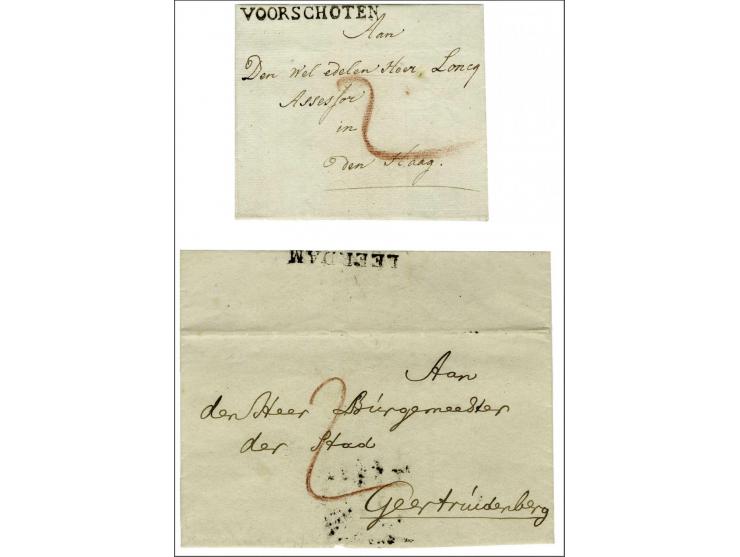 VOORSCHOTEN
Aan
Den Wel edelen Heer Loncq
Assessor
in
den Haag.
2
LEERDAM
Aan
den Heer Burgemeester
der Stad
Geertruidenberg
2